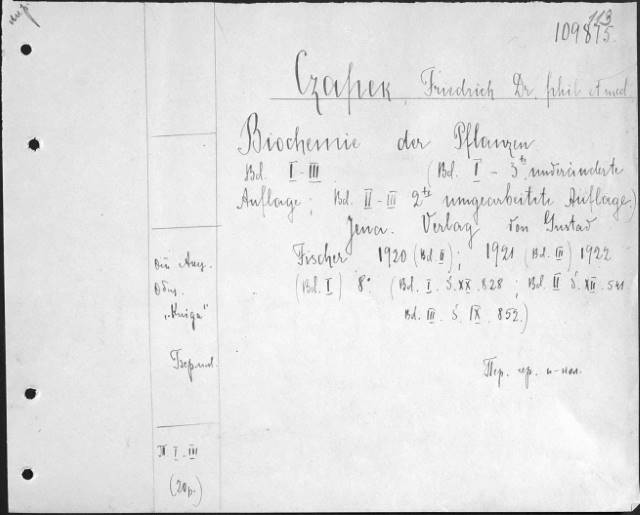 113
109875.
Czapek, Friedrich Dr. phil et med
Biochemie der Pflanzen
Bd. I-III. (Bd. I - 3te unveränderte
Auflage; Bd. II-III 2te umgearbeitete Auflage.)
Jena. Verlag von Gustav
Fischer 1920 (Bd. II); 1921 (Bd. III) 1922
(Bd. I) 8° (Bd. I. S. XX. 828; Bd. II S. XII. 541
Bd. III. S. IX. 852.)
"Книга"
Герм.
Пер. чер. к-кол.
Т. I-III
(20р.)